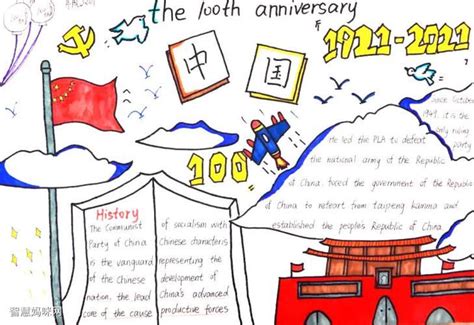 the 100th anniversary
1921-2021
中 国
100
1949, it is the
only ruling
party
He led the PLA to defeat
the national army of the Republic
of China, forced the government of the Republic
of China to retreat from taipeng kanma and
established the people's Republic of China.
History
The Communist
Party of China
is the vanguard
of the Chinese
nation, the lead
core of the cause
of socialism with
Chinese characteris
representing the
development of
China's advanced
productive forces
智慧妈咪网